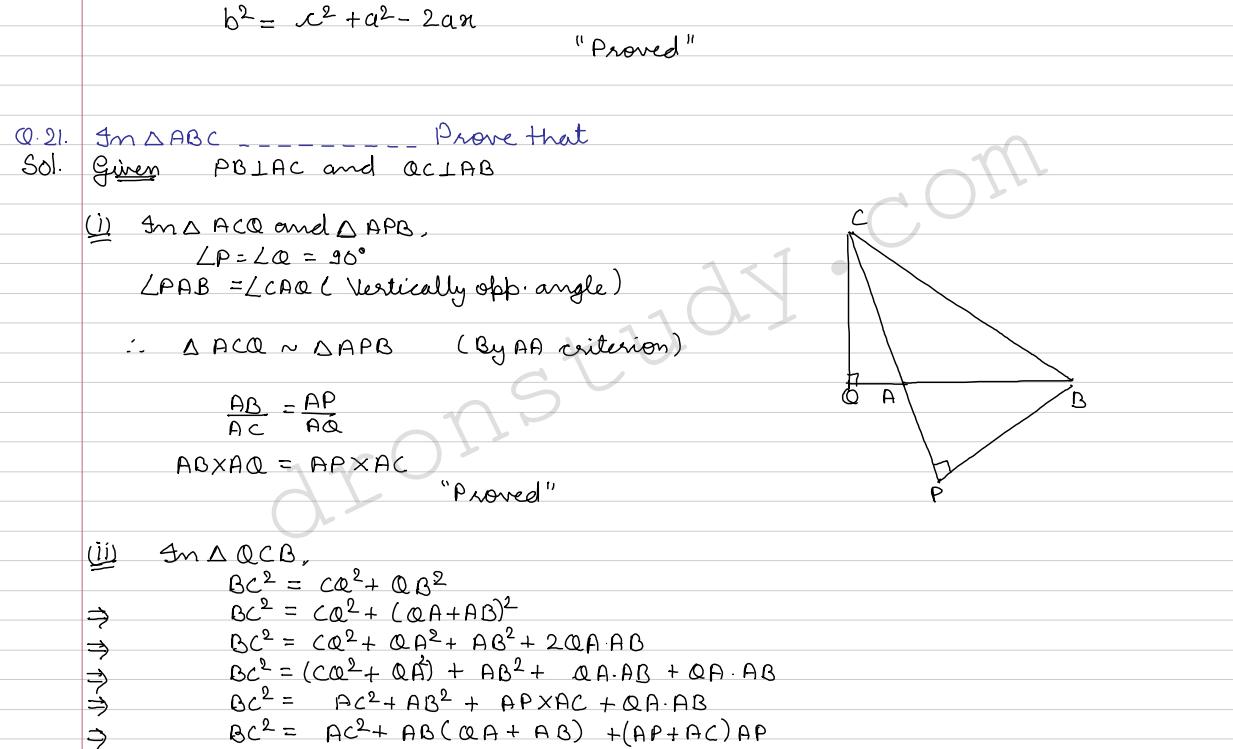 b² = c² + a² - 2ax
"Proved"
Q.21. In △ABC _ _ _ _ _ _ _ _ _ Prove that
Sol. Given PB⊥AC and QC⊥AB
(i) In △ ACQ and △ APB,
∠P = ∠Q = 90°
∠PAB = ∠CAQ ( Vertically opp. angle)
∴ △ ACQ ~ △APB (By AA criterion)
AB/AC = AP/AQ
AB×AQ = AP×AC
"Proved"
(ii) In △ QCB,
BC² = CQ² + QB²
⇒ BC² = CQ² + (QA+AB)²
⇒ BC² = CQ² + QA² + AB² + 2QA·AB
⇒ BC² = (CQ² + QA²) + AB² + QA·AB + QA·AB
⇒ BC² = AC² + AB² + AP×AC + QA·AB
⇒ BC² = AC² + AB(QA + AB) + (AP+AC)AP
C
Q A B
P
dronstudy.com